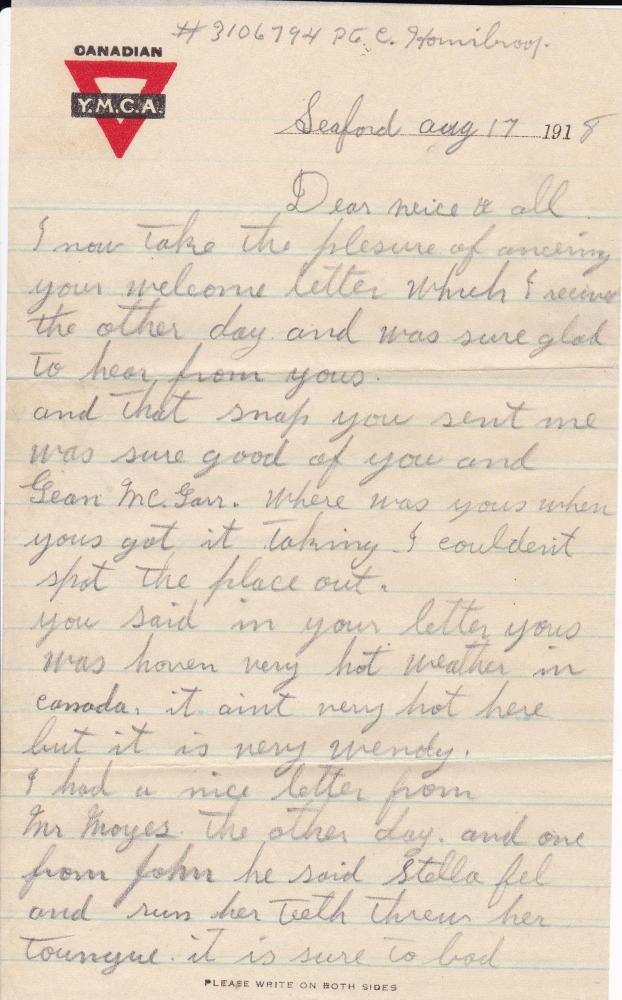 # 3106794 Pte. C. Homibrook.
CANADIAN
Y.M.C.A.
Seaford aug 17 1918
Dear neice & all
I now take the plesure of ancering
your welcome letter which I recived
the other day and was sure glad
to hear from yous.
and that snap you sent me
was sure good of you and
Gean Mc.Garr. where was yous when
yous got it taking I couldent
spot the place out.
you said in your letter yous
was haven very hot weather in
canada. it aint very hot here
but it is very wendy.
I had a nice letter from
Mr Moyes the other day. and one
from John he said Stella fel
and run her teeth threw her
toungue. it is sure to bad
PLEASE WRITE ON BOTH SIDES